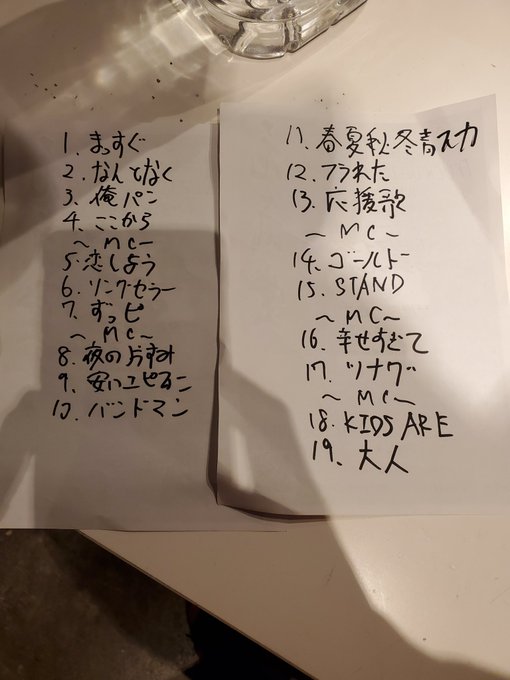 1. まっすぐ
2. なんとなく
3. 俺パン
4. ここから
〜MC〜
5. 恋しよう
6. ソングセラー
7. ずっピ
〜MC〜
8. 夜のおすみ
9. 安いエピローン
10. バンドマン
11. 春夏秋冬青スカ
12. フラれた
13. 応援歌
〜MC〜
14. ゴールドー
15. STAND
〜MC〜
16. 幸せすぎて
17. ツナグ
〜MC〜
18. KIDS ARE
19. 大人